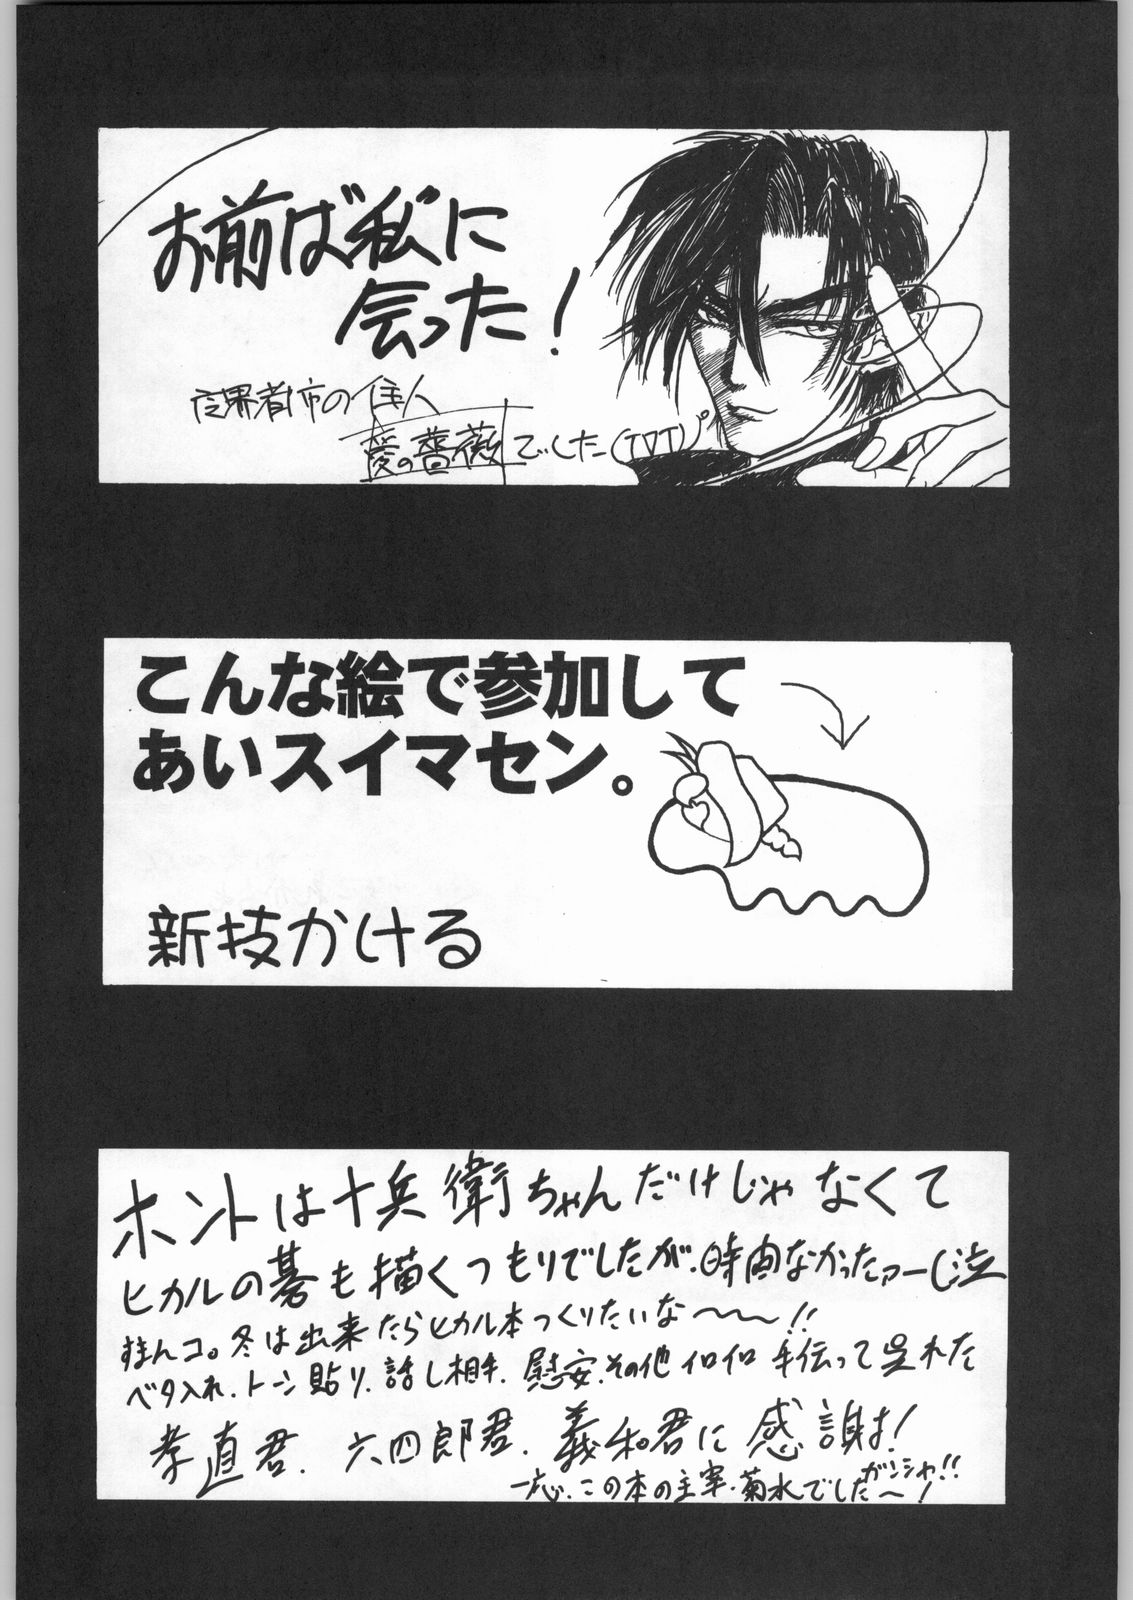 お前ば私に
会った!
愛の薔薇でした(T▽T)
こんな絵で参加して
あいスイマセン。
新技かける
ホントは十兵衛ちゃんだけじゃなくて
ヒカルの碁も描くつもりでしたが、時間なかったァーし泣
すまんコ。冬は出来たらヒカル本つくりたいな〜〜〜!!
ベタ入れ、トーン貼り、話し相手、慰安、その他イロイロ手伝って呉れた
孝直君、六四郎君、義和君に感謝!
ガンシャ!!
一応、この本の主宰・菊水でした〜!